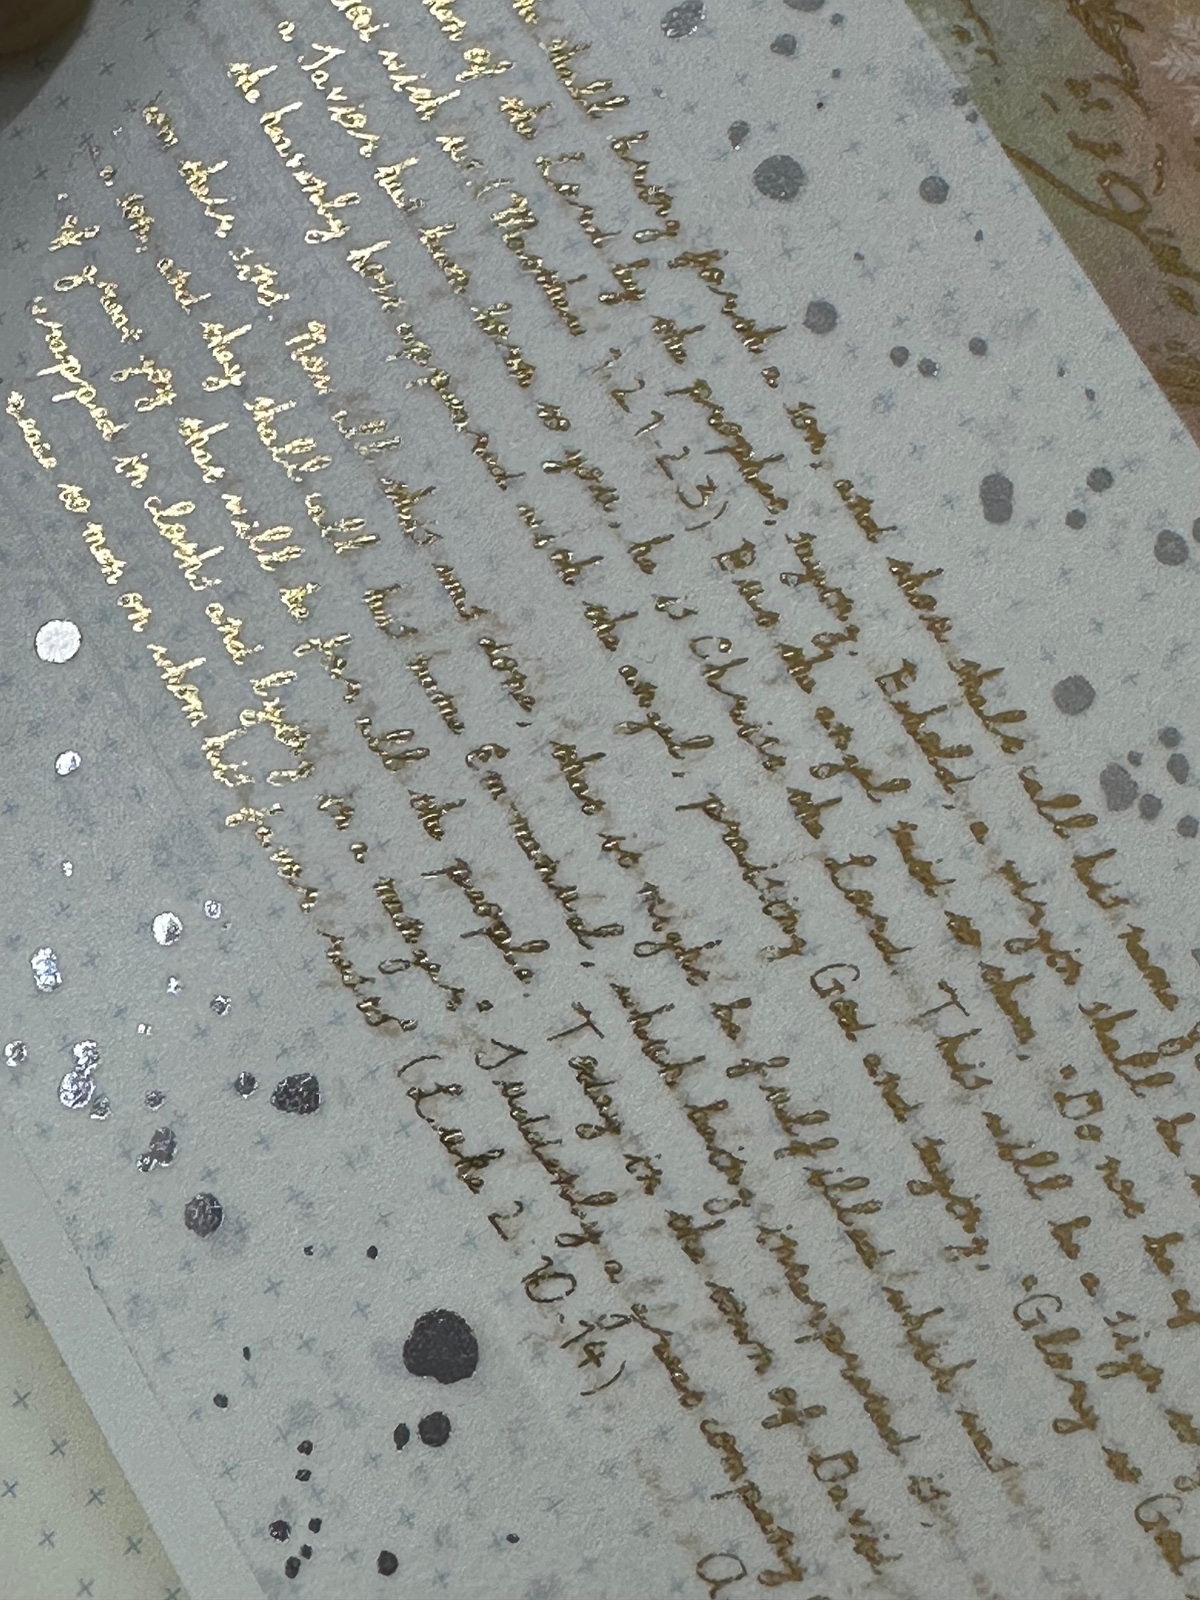 shall bring forth a son, and thou shalt call his name
of the Lord by the prophet, saying, Behold, a virgin shall be
with us.(Matthew 1 21-23) But the angel said to them, "Do not be of
a Savior has been born to you, he is Christ the Lord. This will be a sign
the heavenly host appeared with the angel, praising God and saying, "Glory to God
their sins. Now all this was done, that it might be fulfilled which was
a son and they shall call his name Emmanuel, which being interpreted is,
of great joy that will be for all the people. Today in the town of David
wrapped in cloths and lying in a manger." Suddenly a great company
peace to men on whom his favor rests." (Luke 2 10-14)